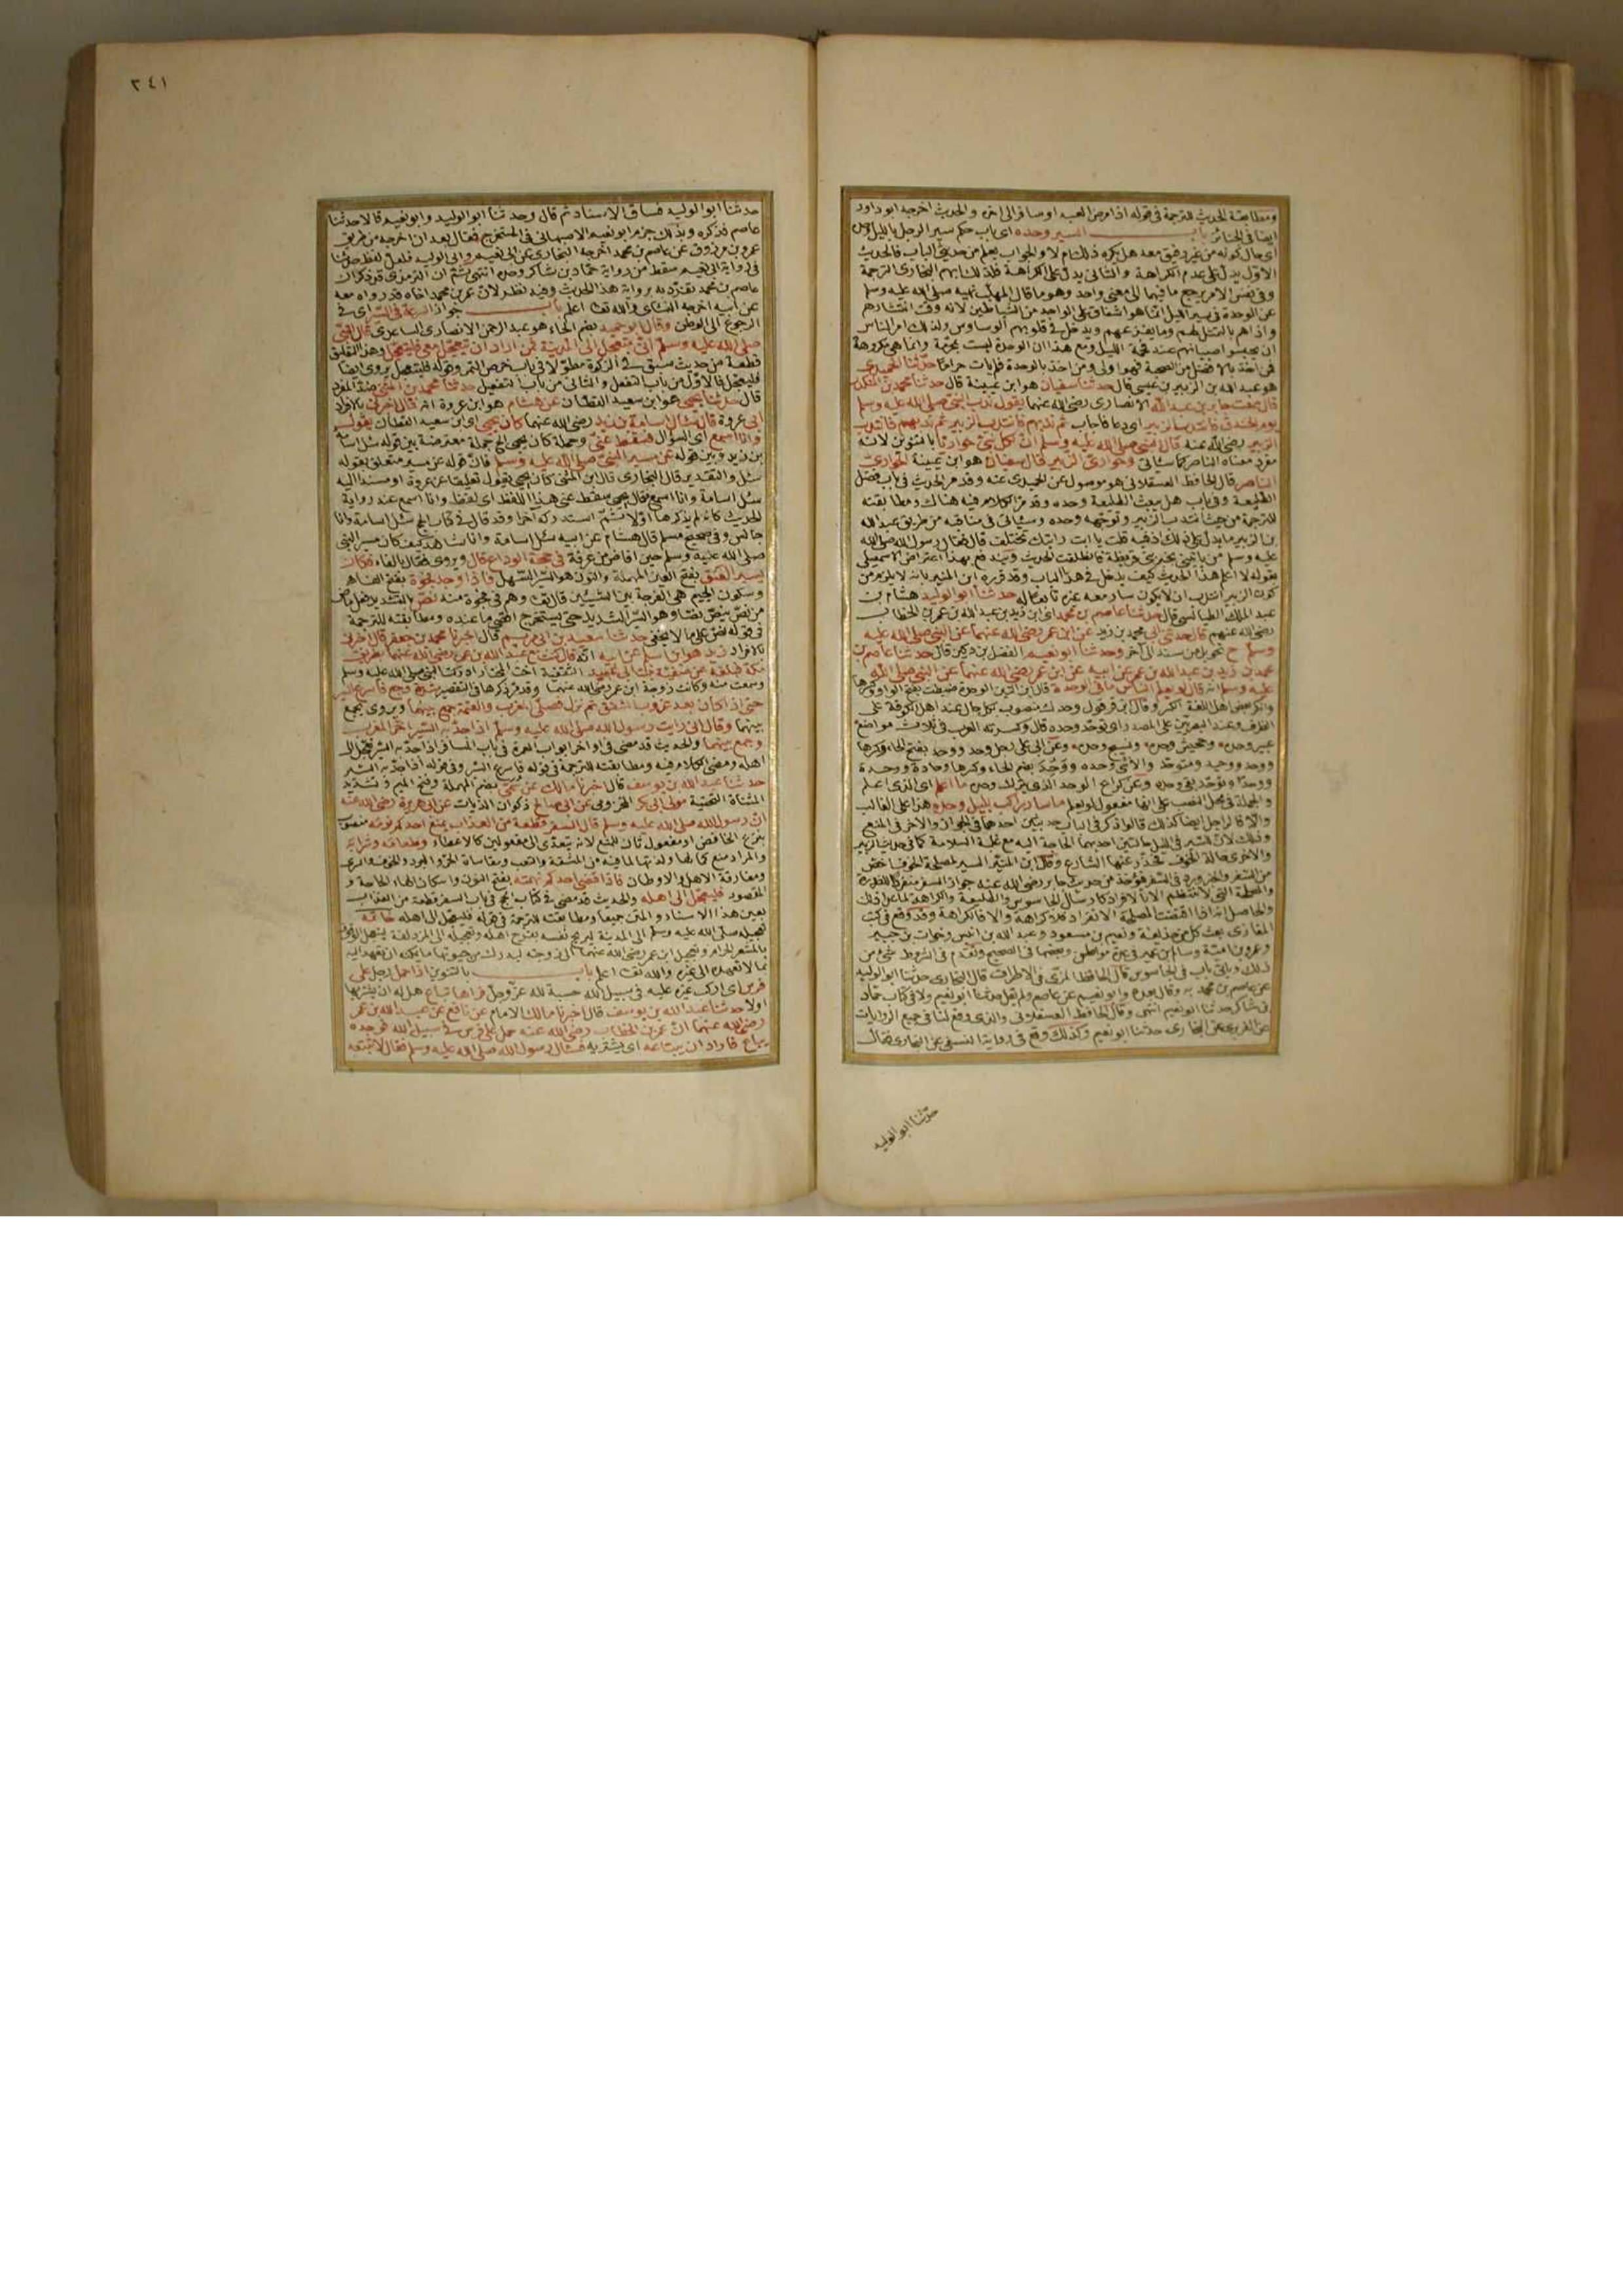 ومطابقة الحديث للترجمة في قوله اذا مرض العبد او سافر الى اخره والحديث اخرجه ابو داود
ايضا في الجنائز باب السير وحده اى باب حكم سير الرجل بالليل
اى حال كونه من غير رفيق معه هل يكره ذلك ام لا والجواب يعلم من حديثي الباب فالحديث
الاول يدل على عدم الكراهة والثاني يدل على الكراهة فلذلك ابهم البخارى الترجمة
وفي نفس الامر يرجع ما فيهما الى معنى واحد وهو ما قال المهلب نهيه صلى الله عليه وسلم
عن الوحدة في سير الليل انما هو اشفاق على الواحد من الشياطين لانه وقت انتشارهم
واذاهم بالتمثل لهم وما يفزعهم ويدخل في قلوبهم الوساوس ولذلك امر الناس
ان يحبسوا صبيانهم عند فحمة الليل ومع هذا ان الوحدة ليست بمحرمة وانما هي مكروهة
فمن اخذ بالافضل من الصحبة فهو اولى ومن اخذ بالوحدة فلم يأت حراما حدثنا الحميدى
هو عبد الله بن الزبير بن عيسى قال حدثنا سفيان هو ابن عيينة قال حدثنا محمد بن المنكدر
قال سمعت جابر بن عبد الله الانصارى رضى الله عنهما يقول ندب النبي صلى الله عليه وسلم
يوم الخندق فانتدب الزبير اى دعا فاجاب ثم ندبهم فانتدب الزبير ثم ندبهم فانتدب
الزبير رضى الله عنه قال النبي صلى الله عليه وسلم ان لكل نبي حواريا بالتنوين لانه
مفرد معناه الناصر كما سيأتي وحوارى الزبير قال سفيان هو ابن عيينة الحوارى
الناصر قال الحافظ العسقلاني هو موصول عن الحميدى عنه وقد مر الحديث في باب فضل
الطليعة وفي باب هل يبعث الطليعة وحده وقد مر الكلام فيه هناك ومطابقته
للترجمة من حيث انتداب الزبير وتوجهه وحده وسيأتي في مناقبه من طريق عبد الله
بن الزبير ما يدل على ذلك ففيه قلت يا ابت رايتك تختلف قال فقال رسول الله صلى الله
عليه وسلم من يأتيني بخبر بني قريظة فانطلقت الحديث ويندفع بهذا اعتراض الاسمعيلي
بقوله لا اعلم هذا الحديث كيف يدخل في هذا الباب وقد قرره ابن المنير بانه لا يلزم من
كون الزبير انتدب ان لا يكون سار معه غيره تابعا له حدثنا ابو الوليد هشام بن
عبد الملك الطيالسي قال حدثنا عاصم بن محمد اى ابن زيد بن عبد الله بن عمر بن الخطاب
رضى الله عنهم قال حدثني ابي محمد بن زيد عن ابن عمر رضى الله عنهما عن النبي صلى الله عليه
وسلم ح تحويل من سند الى آخر وحدثنا ابو نعيم الفضل بن دكين قال حدثنا عاصم بن
محمد بن زيد بن عبد الله بن عمر عن ابيه عن ابن عمر رضى الله عنهما عن النبي صلى الله
عليه وسلم انه قال لو يعلم الناس ما في الوحدة قال ابن التين الوحدة ضبطت بفتح الواو وكسرها
وانكر بعض اهل اللغة الكسر وقال ابن قرقول وحدك منصوب بكل حال عند اهل الكوفة على
الظرف وعند البصريين على المصدر اى توحد وحده قال وكسرته العرب في ثلاث مواضع
عيير وحده وجحيش وحده ونسيج وحده وعن ابي علي رجل وحد ووحد بفتح الحاء وكسرها
ووحد ووحيد ومتوحد والأنثى وحده ووحد بضم الحاء وكسرها وحادة ووحدة
ووحدا وتوحد بقي وحده وعن كراع الوحد الذى ينزل وحده ما اعلم اى الذى اعلم
والجملة في محل النصب على انها مفعول لو يعلم ما سار راكب بليل وحده هذا على الغالب
والا فالراجل ايضا كذلك قالوا ذكر في الباب حديثين احدهما في الجواز والآخر في المنع
وذلك لان للسير في الليل حالتين احديهما الحاجة اليه مع غلبة السلامة كما في حديث الزبير
والاخرى حالة الخوف فحذر عنها الشارع وقال ابن المنير السير لمصلحة الحرب اخص
من السفر والخبر ورد في السفر فيؤخذ من حديث جابر رضى الله عنه جواز السفر منفردا للضرورة
والمصلحة التي لا تنتظم الا بالافراد كارسال الجاسوس والطليعة والكراهة لما عدا ذلك
والحاصل انه اذا اقتضت المصلحة الانفراد فلا كراهة والا فالكراهة وقد وقع في كتب
المغازى بعث كل من حذيفة ونعيم بن مسعود وعبد الله بن انيس وخوات بن جبير
وعمرو بن امية وسالم بن عمير في عدة مواطن وبعضها في الصحيح وتقدم في الشروط شيء من
ذلك ويأتي باب في الجاسوس قال الحافظ المزى في الاطراف قال البخارى حدثنا ابو الوليد
عن عاصم بن محمد به وقال بعده وابو نعيم عن عاصم ولم يقل حدثنا ابو نعيم ولا في كتاب حماد
بن شاكر حدثنا ابو نعيم انتهى وقال الحافظ العسقلاني والذى وقع لنا في جميع الروايات
عن الفربرى عن البخارى حدثنا ابو نعيم وكذلك وقع في رواية النسفي عن البخارى فقال
حدثنا ابو الوليد
٣٤١
حدثنا ابو الوليد فساق الاسناد ثم قال وحدثنا ابو الوليد وابو نعيم قالا حدثنا
عاصم فذكره وبذلك جزم ابو نعيم الاصبهاني في المستخرج فقال بعد ان اخرجه من طريق
عمرو بن مرزوق عن عاصم بن محمد اخرجه البخارى عن ابي نعيم وابي الوليد فلعل لفظ حدثنا
في رواية ابي نعيم سقط من رواية حماد بن شاكر وحده انتهى ثم ان الترمذى قد ذكر ان
عاصم بن محمد تفرد به برواية هذا الحديث وفيه نظر لان عمر بن محمد اخاه قد رواه معه
عن ابيه اخرجه النسائى والله تعا اعلم باب جواز السرعة في السير اى في
الرجوع الى الوطن وقال ابو حميد بضم الحاء هو عبد الرحمن الانصارى الساعدى قال النبي
صلى الله عليه وسلم انى متعجل الى المدينة فمن اراد ان يتعجل معى فليتعجل وهذا التعليق
قطعة من حديث سبق في الزكوة مطولا في باب خرص التمر وقوله فليتعجل يروى ايضا
فليعجل فالاول من باب التفعل والثاني من باب التفعيل حدثنا محمد بن المثنى ضد المفرد
قال حدثنا يحيى هو ابن سعيد القطان عن هشام هو ابن عروة انه قال اخبرني بالافراد
ابى عروة قال سئل اسامة بن زيد رضى الله عنهما كان يحيى اى ابن سعيد القطان يقول
وانا اسمع اى السؤال فسقط عنى وجملة كان يحيى الخ جملة معترضة بين قوله سئل اسامة
بن زيد وبين قوله عن مسير النبي صلى الله عليه وسلم فان قوله عن مسير متعلق بقوله
سئل والتقدير قال البخارى قال ابن المثنى كان يحيى يقول تعليقا عن عروة او مسندا اليه
سئل اسامة وانا اسمع فقال يحيى سقط عنى هذا اللفظ اى لفظ وانا اسمع عند رواية
الحديث كانه لم يذكرها اولا ثم استدركه آخرا وقد قال في كتاب الحج سئل اسامة وانا
جالس وفي صحيح مسلم قال هشام عن ابيه سئل اسامة وانا شاهد كيف كان مسير النبي
صلى الله عليه وسلم حين افاض من عرفة في حجة الوداع قال ويروى فقال بالفاء فكان
يسير العنق بفتح العين المهملة والنون هو السير السهل فاذا وجد فجوة بفتح الفاء
وسكون الجيم هي الفرجة بين الشيئين قال تعا وهم في فجوة منه نص بالتشديد فعل ماض
من نص ينص نصا وهو السير الشديد حتى يستخرج اقصى ما عنده ومطابقته للترجمة
في قوله نص على ما لا يخفى حدثنا سعيد بن ابي مريم قال اخبرنا محمد بن جعفر قال اخبرني
بالافراد زيد هو ابن اسلم عن ابيه انه قال كنت مع عبد الله بن عمر رضى الله عنهما بطريق
مكة فبلغه عن صفية بنت ابي عبيد الثقفية اخت المختار ادركت النبي صلى الله عليه وسلم
وسمعت منه وكانت زوجة ابن عمر رضى الله عنهما وقد مر ذكرها في التقصير شدة وجع فاسرع السير
حتى اذا كان بعد غروب الشفق ثم نزل فصلى المغرب والعتمة جمع بينهما ويروى يجمع
بينهما وقال انى رايت رسول الله صلى الله عليه وسلم اذا جد به السير اخر المغرب
وجمع بينهما والحديث قد مضى في اواخر ابواب العمرة في باب المسافر اذا جد به السير تعجل الى
اهله ومضى الكلام فيه ومطابقته للترجمة في قوله فاسرع السير وفي قوله اذا جد به السير
حدثنا عبد الله بن يوسف قال اخبرنا مالك عن سمى بضم المهملة وفتح الميم وتشديد
المثناة التحتية مولى ابى بكر المخزومى عن ابي صالح ذكوان الزيات عن ابي هريرة رضى الله عنه
ان رسول الله صلى الله عليه وسلم قال السفر قطعة من العذاب يمنع احدكم نومه منصوب
بنزع الخافض او مفعول ثان للمنع لانه يتعدى الى مفعولين كالاعطاء وطعامه وشرابه
والمراد منع كمالها ولذتها لما فيه من المشقة والتعب ومقاساة الحر والبرد والخوف والسرى
ومفارقة الاهل والاوطان فاذا قضى احدكم نهمته بفتح النون واسكان الهاء الحاجة و
المقصود فليعجل الى اهله والحديث قد مضى في كتاب الحج في باب السفر قطعة من العذاب
بعين هذا الاسناد والمتن جميعا ومطابقته للترجمة في قوله فليعجل الى اهله خاتمة
تعجيله صلى الله عليه وسلم الى المدينة ليريح نفسه يفرح اهله وتعجيله الى المزدلفة ليعجل الوقوف
بالمشعر الحرام وتعجيل ابن عمر رضى الله عنهما الى زوجته ليدرك من حيوتها ما يمكنه ان تعهد اليه
بما لا تعهده الى غيره والله تعا اعلم باب بالتنوين اذا حمل رجل على
فرس اى اركب غيره عليه في سبيل الله حسبة لله عز وجل فراها تباع هل له ان يشتريها
اولا حدثنا عبد الله بن يوسف قال اخبرنا مالك الامام عن نافع عن عبد الله بن عمر
رضى الله عنهما ان عمر بن الخطاب رضى الله عنه حمل على فرس في سبيل الله فوجده
يباع فاراد ان يبتاعه اى يشتريه فسئال رسول الله صلى الله عليه وسلم فقال لا تبتعه